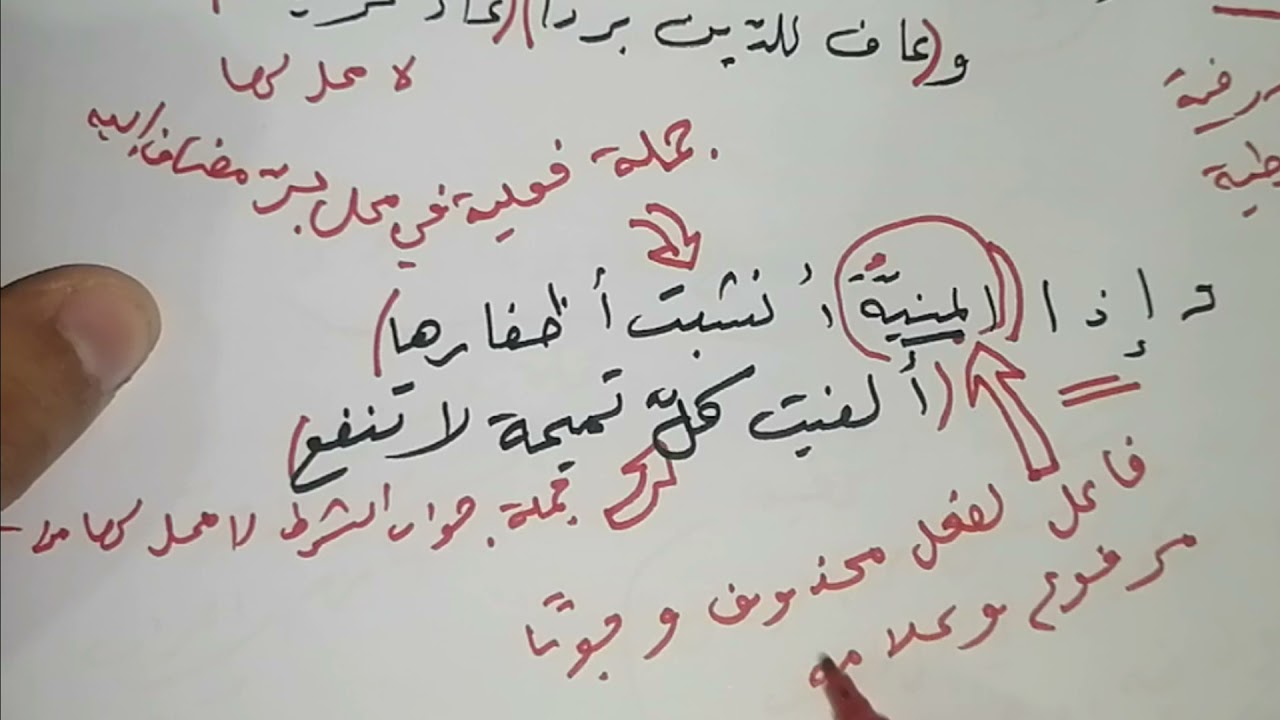 وعاف للتيت بردا
لا محل لها
جملة فعلية في محل جرّ مضاف إليه
وإذا المنيّةُ أنشبت أظفارها
ألفيت كلّ تميمة لا تنفع
جملة جواب الشرط لا محل لها من
فاعل لفعل محذوف وجوبًا
مرفوع وعلامة